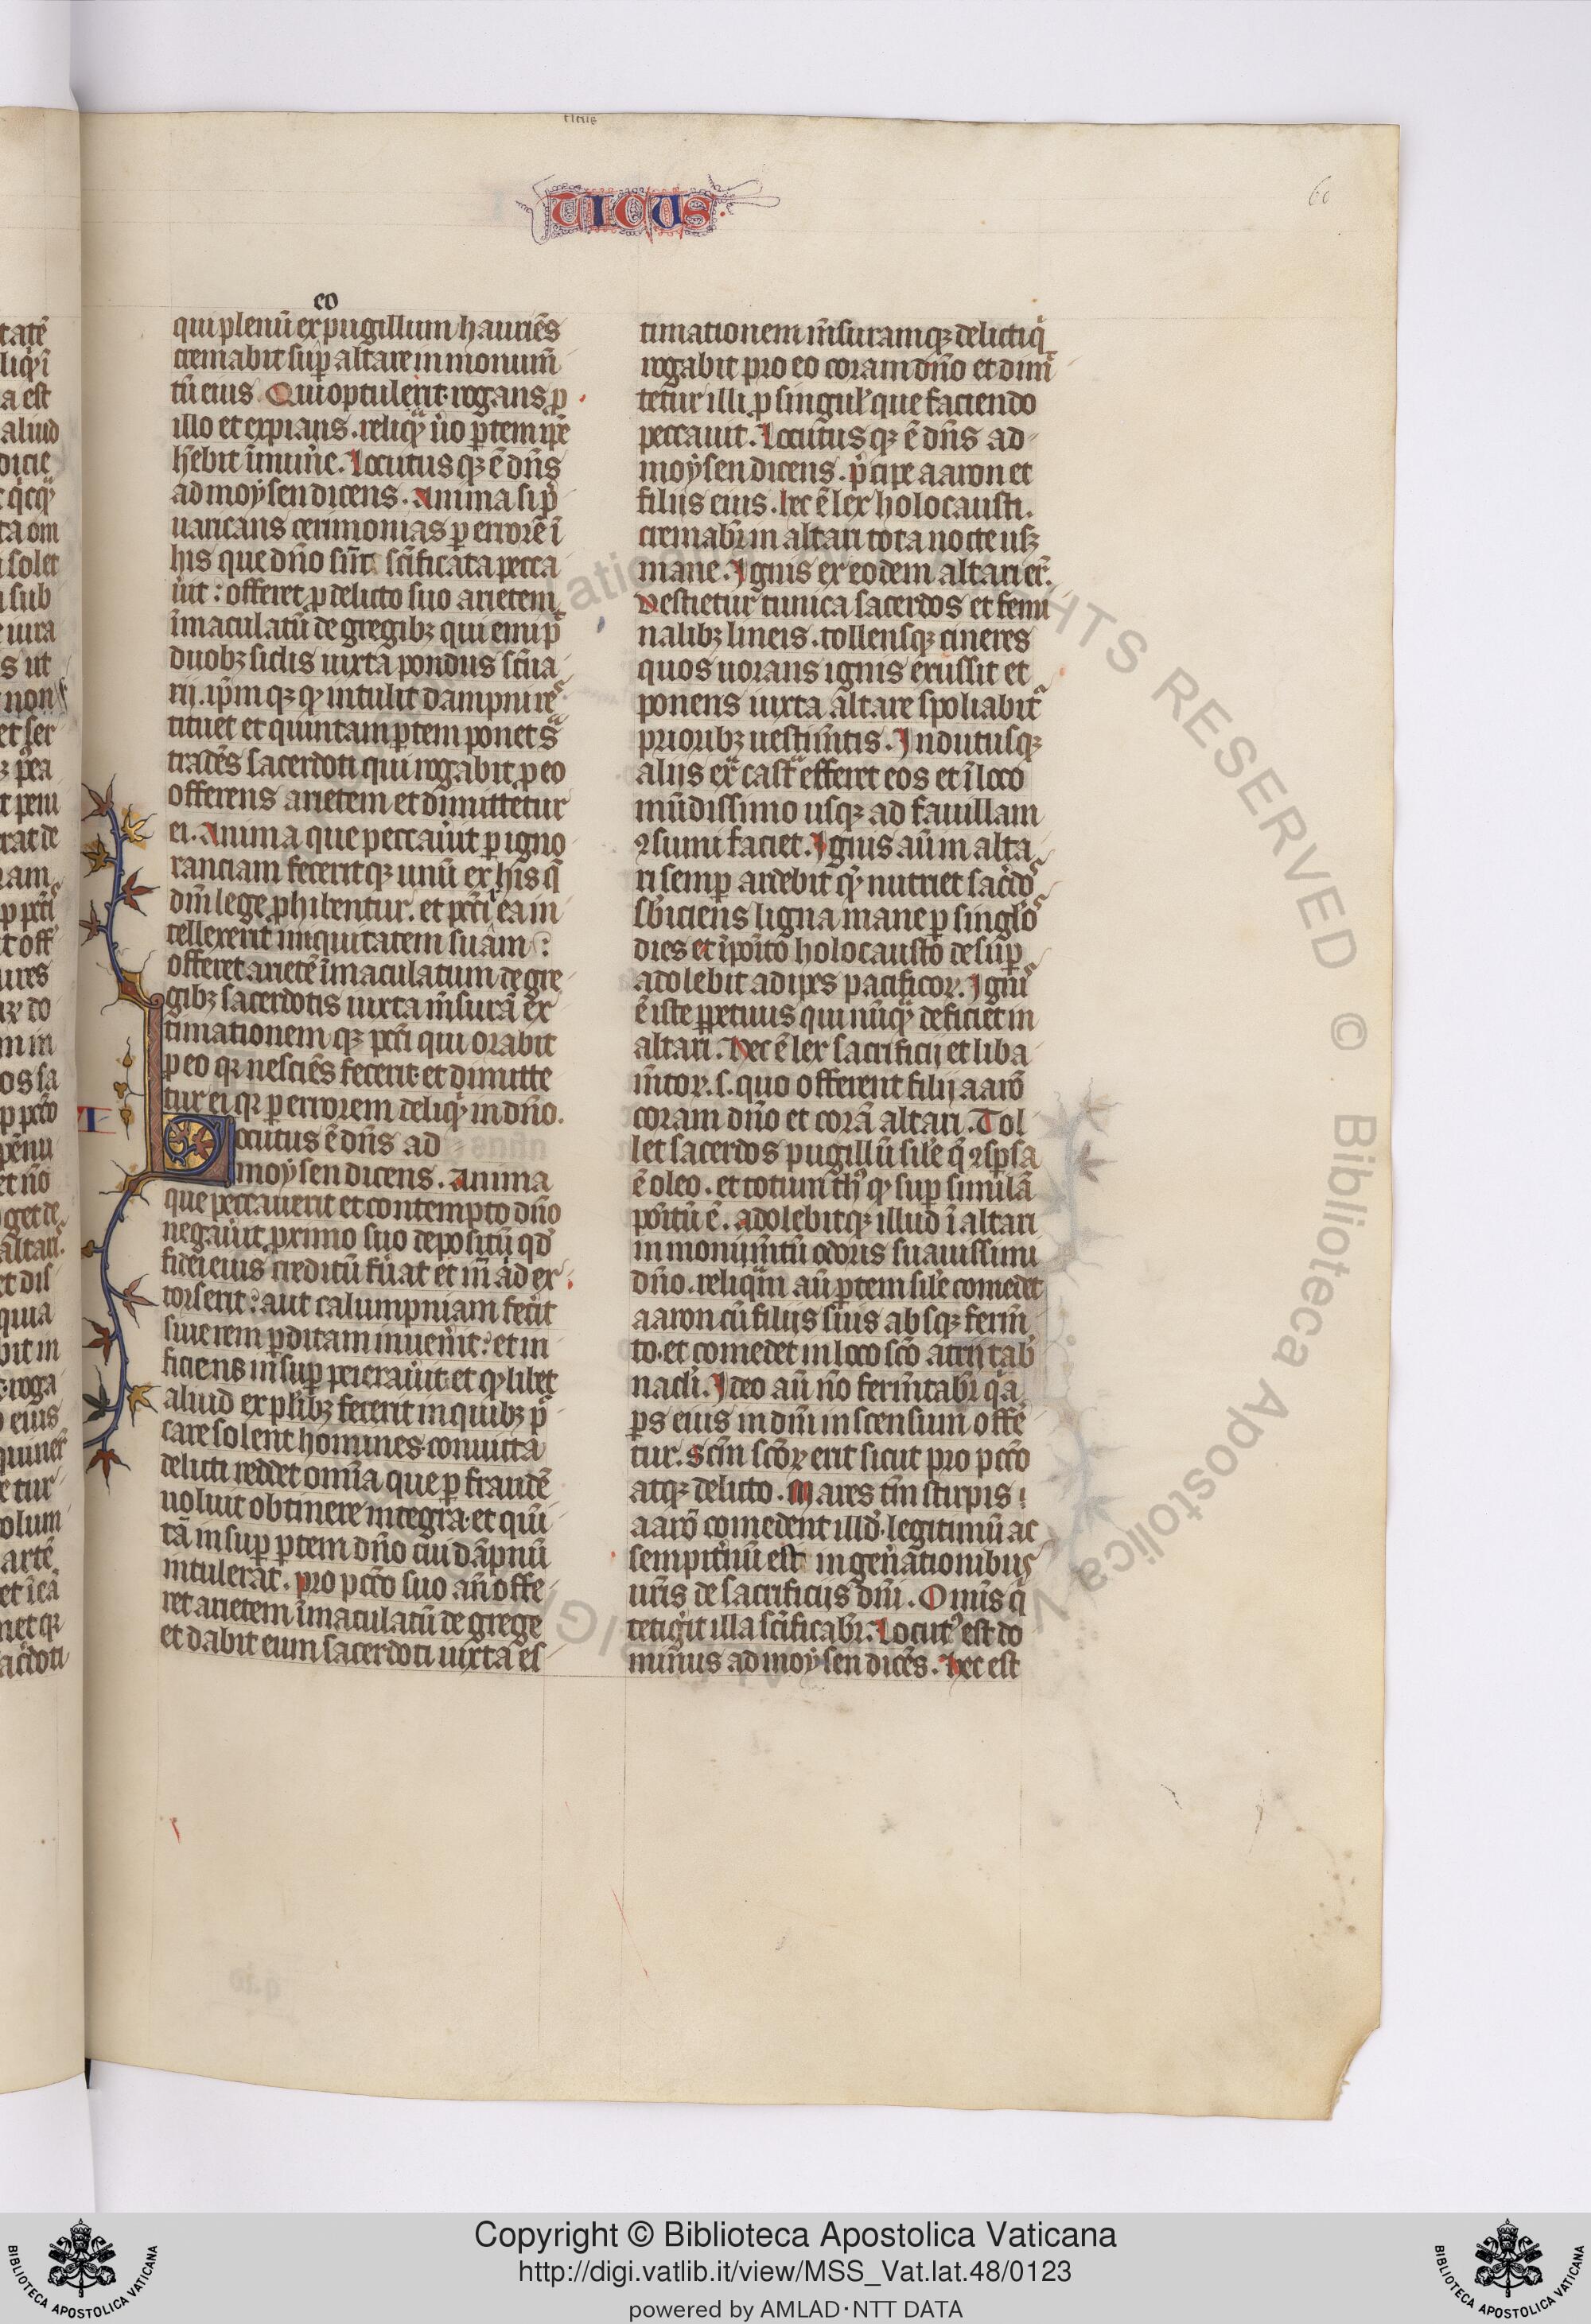 TICUS.
eo
qui plenū ex pugillum hauriēs
cremabit suꝑ altare in monum̄
tū eius. Qui optulerit. rogans ꝓ
illo et expians. reliqͣ u̾o ꝑtem ip̄e
hēbit ī mun̾e. Locutus qꝫ ē dn̄s
ad moysen dicens. Anima si p̾
uaricans cerimonias ꝑ errorē ī
his que dn̄o sūt sc̄ificata pecca
u̾it: offeret ꝓ delicto suo arietem
īmaculatū de gregibꝫ qui emi pͭ
duobꝫ siclis iuxta pondus sc̄ua
rij. ip̄m qꝫ qͦ intulit dampni reˢ
tituet et quintam ꝑtem ponet sͣ
tradēs sacerdoti qui rogabit ꝓ eo
offerens arietem et dimittetur
ei. Anima que peccau̾it ꝑ igno
ranciam feceritqꝫ unū ex his q̄
dn̄i lege ꝓhibentur. et pct̄i ea in
tellexerit iniquitatem suam:
offeret arietē īmaculatum de gre
gibꝫ sacerdotis iuxta m̄surā ex
timationem qꝫ pct̄i qui orabit
ꝓ eo qꝛ nesciēs fecerit. et dimitte
tur ei qꝛ ꝑ errorem deliqͥt in dn̄o.
VI
Locutus ē dn̄s ad
moysen dicens. Anima
que peccauerit et contempto dn̄o
negau̾it ꝓximo suo depositū qd̾
fidei eius creditū fu̾at et ī ad ex
torserit: aut calumpniam fec̾it
siue rem ꝑditam inuen̾it: et in
ficiens insuꝑ peierau̾it: et qͦdlibet
aliud ex pl̾ibꝫ fecerit in quibꝫ pͨ
care solent homines. conuicta
delicti reddet om̄ia que ꝑ fraudē
uoluit obtinere integra. et quī
tā insuꝑ ꝑtem dn̄o cui dāpnū
intulerat. Pro pct̄o suo aū offe
ret arietem īmaculatū de grege
et dabit eum sacerdoti iuxta es
timationem m̄suramqꝫ delicti qͥ
rogabit pro eo coram dn̄o et dimi
tetur illi ꝓ singul̾ que faciendo
peccauit. Locutus qꝫ ē dn̄s ad
moysen dicens. p̾cipe aaron et
filijs eius. hec ē lex holocausti.
cremabr̄ in altari tota nocte usꝫ
mane. Ignis ex eodem altari er̄.
Vestietur tunica sacerdos et femi
nalibꝫ lineis. tollensqꝫ cineres
quos uorans ignis exussit et
ponens iuxta altare spoliabit̾
prioribꝫ uestim̄tis. Indutusqꝫ
alijs exͣ castͣ efferet eos et ī loco
mūdissimo usqꝫ ad fauillam
ꝯsumi faciet. Ignis aū in alta
ri semꝑ ardebit qͣ nutriet sac̾doˢ
sb̾iciens ligna mane ꝑ singl̾oˢ
dies et īpoīto holocausto desuꝑ
adolebit adipes pacificoꝝ. Igniˢ
ē iste ꝑpetuus qui nūqͣ deficiet in
altari. Hec ē lex sacrificij et liba
m̄toꝝ. s. quo offerent filij aarō
coram dn̄o et corā altari. Tol
let sacerdos pugillū sil̾e q̄ ꝯsꝑsa
ē oleo. et totum thꝰ qͦ suꝑ similā
poītū ē. adolebitqꝫ illud ī altari
in monum̄tū odoris suauissimi
dn̄o. reliqͣm aū ꝑtem sil̾e comedet
aaron cū filijs suis absqꝫ ferm̄
to. et comedet in loco sc̄o atrij tab̾
nacl̾i. Ideo aū nō ferm̄tabr̄ qͥa
ꝑs eius in dn̄i inscensum offe̾
tur. Sc̄m sc̄oꝝ erit sicut pro pct̄o
atqꝫ delicto. Mares tm̄ stirpis
aarō comedent illd̾. legitimū ac
sempit̾nū est in gen̾ationibus
ur̄is de sacrificijs dn̄i. Omīs qͥ
tetig̾it illa sc̄ificabr̄. Locutꝰ est do
minus ad moysen dicēs. Hec est
Copyright © Biblioteca Apostolica Vaticana
http://digi.vatlib.it/view/MSS_Vat.lat.48/0123
powered by AMLAD·NTT DATA
BIBLIOTECA APOSTOLICA VATICANA
BIBLIOTECA APOSTOLICA VATICANA